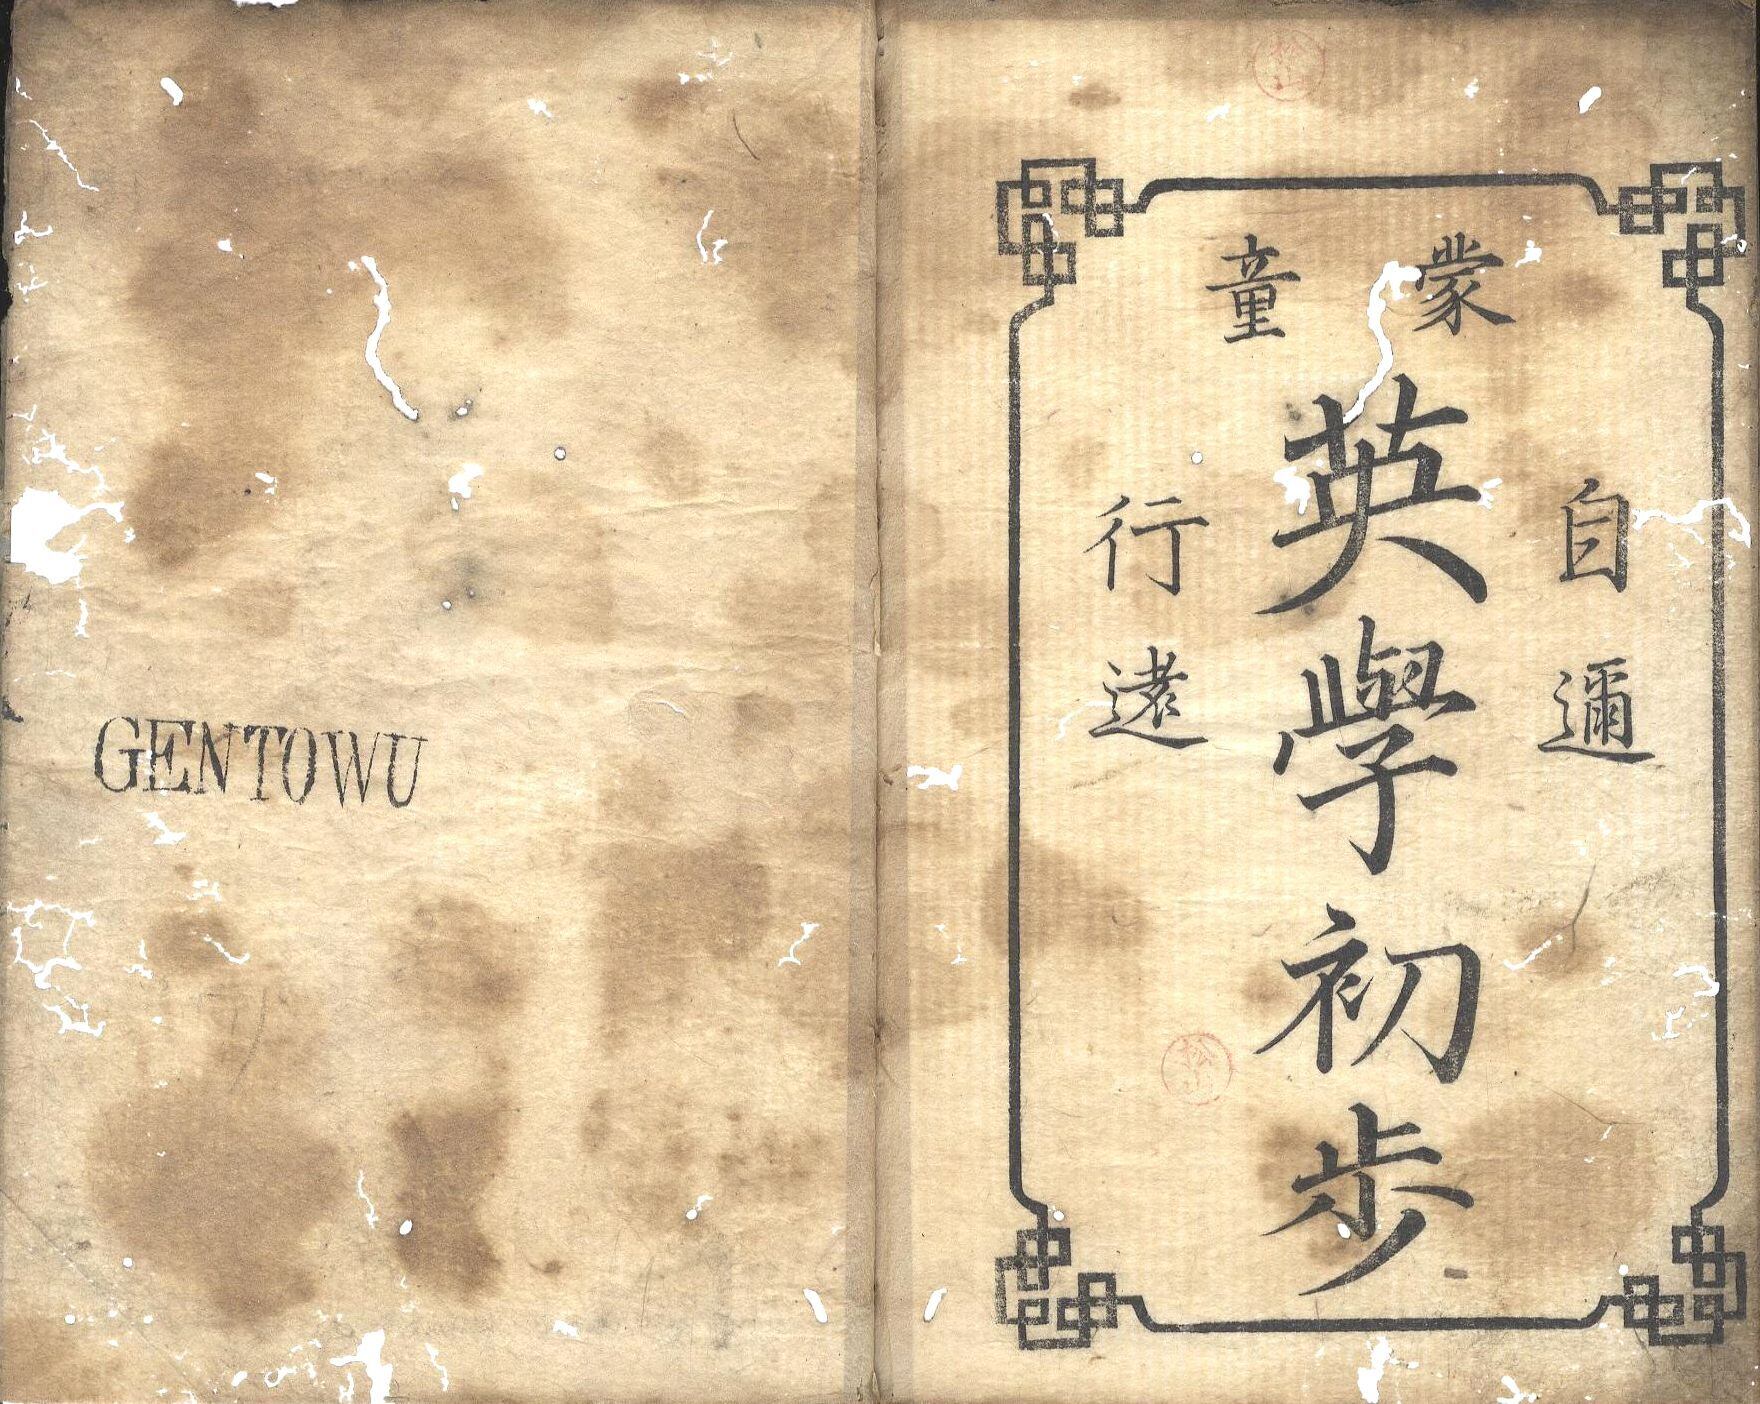 蒙童
自邇
英學初步
行遠
GENTOWU